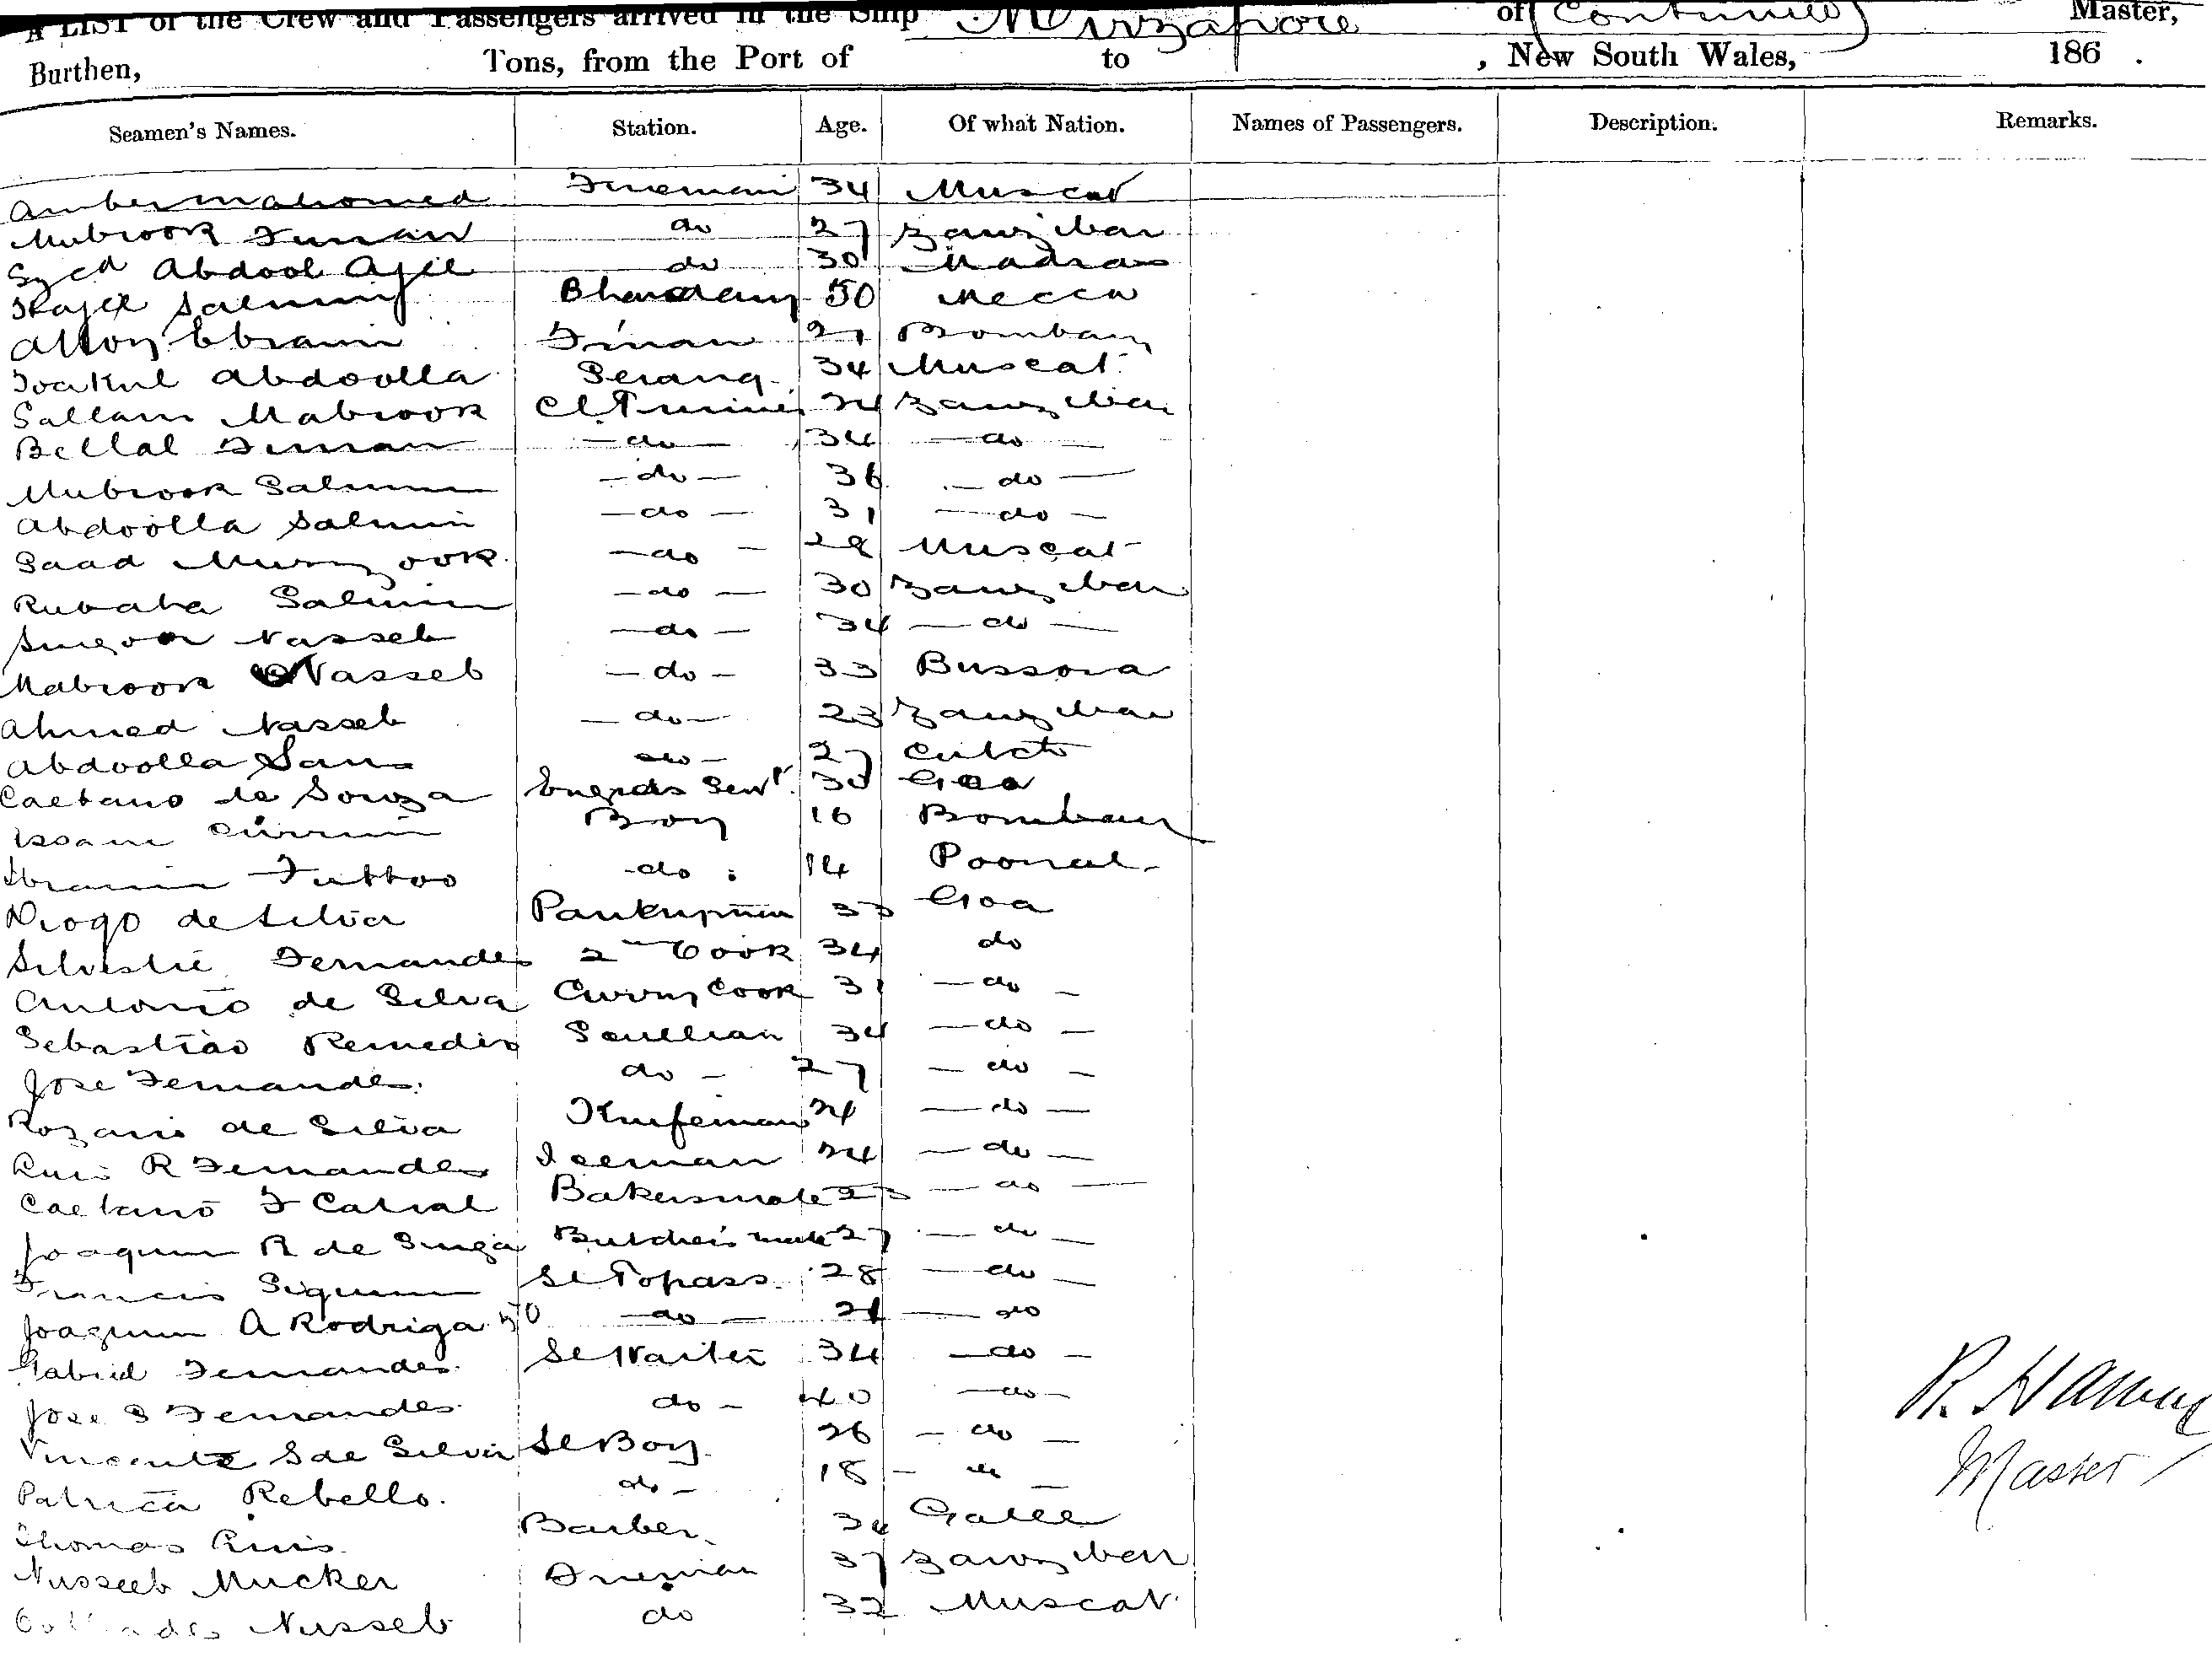 A LIST of the Crew and Passengers arrived in the Ship Mirzapore of (Continued) Master,
Burthen, Tons, from the Port of to , New South Wales, 186 .
Seamen's Names. Station. Age. Of what Nation. Names of Passengers. Description. Remarks.
Amber Mahomed Fireman 34 Muscat
Mubrook Firman do 27 Zanzibar
Syed Abdool Ajie do 30 Madras
Hajee Salmin Bhandary 50 Mecca
Ebraim 21 Bombay
Toakul Abdoolla Serang 34 Muscat
Sallam Mabrook Cl Trimmer 24 Zanzibar
Bellal Firman - do - 34 - do -
Mubrook Salmin - do - 36 - do -
Abdoolla Salmin - do - 31 - do -
Saad Murzook - do - 28 Muscat
Rubaha Salmin - do - 30 Zanzibar
Nasseb - do - 34 - do -
Mabrook Nasseb - do - 33 Bussora
Ahmed Nasseb - do - 23 Zanzibar
Abdoolla do - 27 Cutch
Caetano de Souza Engrs Servt. 30 Goa
Issam Currim Boy 16 Bombay
Ibraim Futtoo do 14 Poonah
Diogo de Silva Pantryman 33 Goa
Silvestre Fernandes 2nd Cook 34 do
Antonio de Silva Curry Cook 31 - do -
Sebastiao Remedio Scullian 34 - do -
Jose Fernandes do - 27 - do -
Rozario de Silva Knifeman 24 - do -
Luis R Fernandes Iceman 24 - do -
Caetano F Cabral Bakersmate 23 - do -
Joaquim R de Butcher's mate 27 - do -
Francis Siquera Sl Topass 28 - do -
Joaquim A Rodriga 50 - do - 21 - do
Gabriel Fernandes Sl Waiter 34 - do -
Jose S Fernandes do - 40 - do -
Vincente S de Silva Sl Boy 26 - do -
Patricia Rebello. do - 18 - do -
Thomas Luis Barber 34 Galle
Nusseeb Mucker Fireman 37 Zanzibar
Nusseb do 32 Muscat
R. Harvey
Master